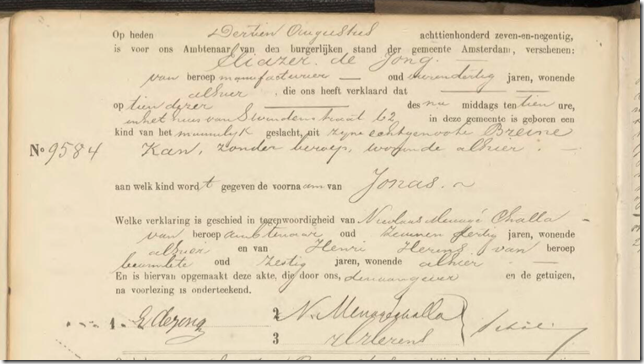 Op heden Dertien Augustus achttienhonderd zeven-en-negentig,
is voor ons Ambtenaar van den burgerlijken stand der gemeente Amsterdam, verschenen:
Eliazer de Jong.
van beroep manufacturier oud jaren, wonende
alhier die ons heeft verklaard dat
op tien dezer des na middags ten tien ure,
in het huis van Swindenstraat 62 in deze gemeente is geboren een
kind van het mannelijk geslacht, uit zijne echtgenoote Breine
No 9584 Kan, zonder beroep, wonende alhier.
aan welk kind wordt gegeven de voornaam van Jonas.
Welke verklaring is geschied in tegenwoordigheid van Nicolaas Menagé Challa
van beroep ambtenaar oud jaren, wonende
alhier en van Henri Herens van beroep
beambte oud zestig jaren, wonende alhier
En is hiervan opgemaakt deze akte, die door ons, den aangever en de getuigen,
na voorlezing is onderteekend.
1. E de Jong 2 N. Menagé Challa
3 H Herens